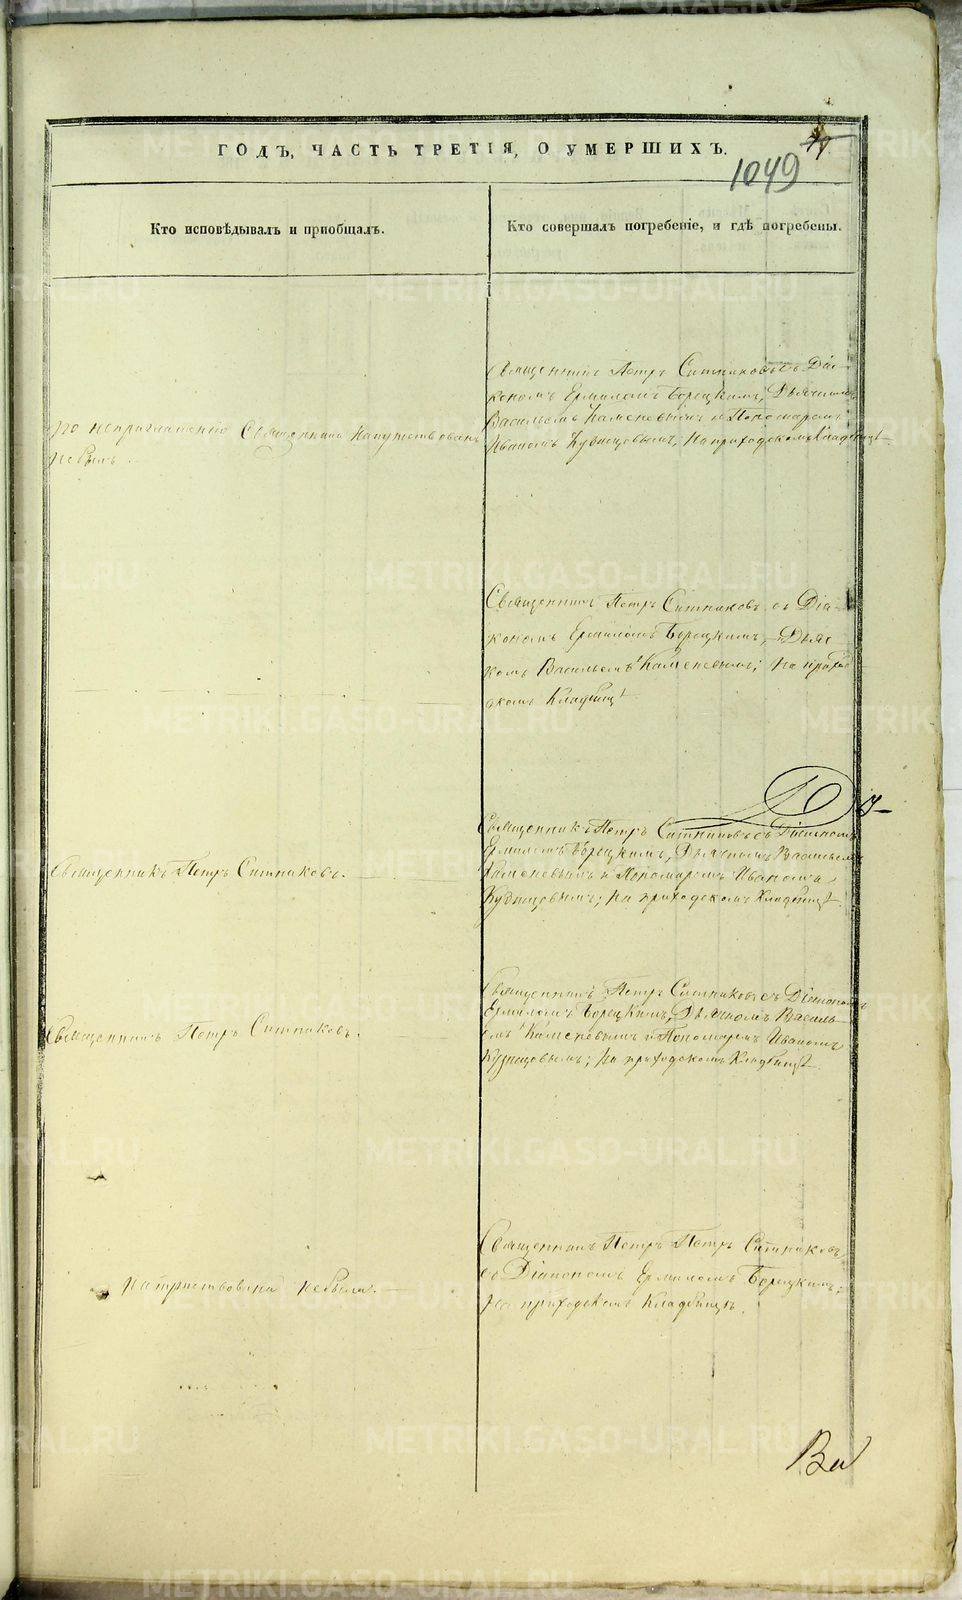 ГОДЪ, ЧАСТЬ ТРЕТІЯ, О УМЕРШИХЪ.
1049
Кто исповѣдывалъ и пріобщалъ.
Кто совершалъ погребеніе, и гдѣ погребены.
По неприглашенію Священника напутствованъ
не былъ.
Священникъ Петръ Ситниковъ съ Діа-
кономъ Ермиломъ Борецкимъ, Дьячкомъ
Васильемъ Каменевымъ и Пономаремъ
Иваномъ Кузнецовымъ, На приходскомъ кладбищѣ
Священникъ Петръ Ситниковъ съ Діа-
кономъ Ермиломъ Борецкимъ, Дьяч-
комъ Васильемъ Каменевымъ; На приход
скомъ кладбищѣ
Священникъ Петръ Ситниковъ.
Священникъ Петръ Ситниковъ съ Діакономъ
Ермиломъ Борецкимъ, Дьячкомъ Васильемъ
Каменевымъ и Пономаремъ Иваномъ
Кузнецовымъ; На приходскомъ кладбищѣ
Священникъ Петръ Ситниковъ.
Священникъ Петръ Ситниковъ съ Діакономъ
Ермиломъ Борецкимъ, Дьячкомъ Василь-
емъ Каменевымъ и Пономаремъ Иваномъ
Кузнецовымъ; На приходскомъ кладбищѣ
не была.
Священникъ Петръ Петръ Ситниковъ
съ Діакономъ Ермиломъ Борецкимъ;
На приходскомъ кладбищѣ.
METRIKI.GASO-URAL.RU